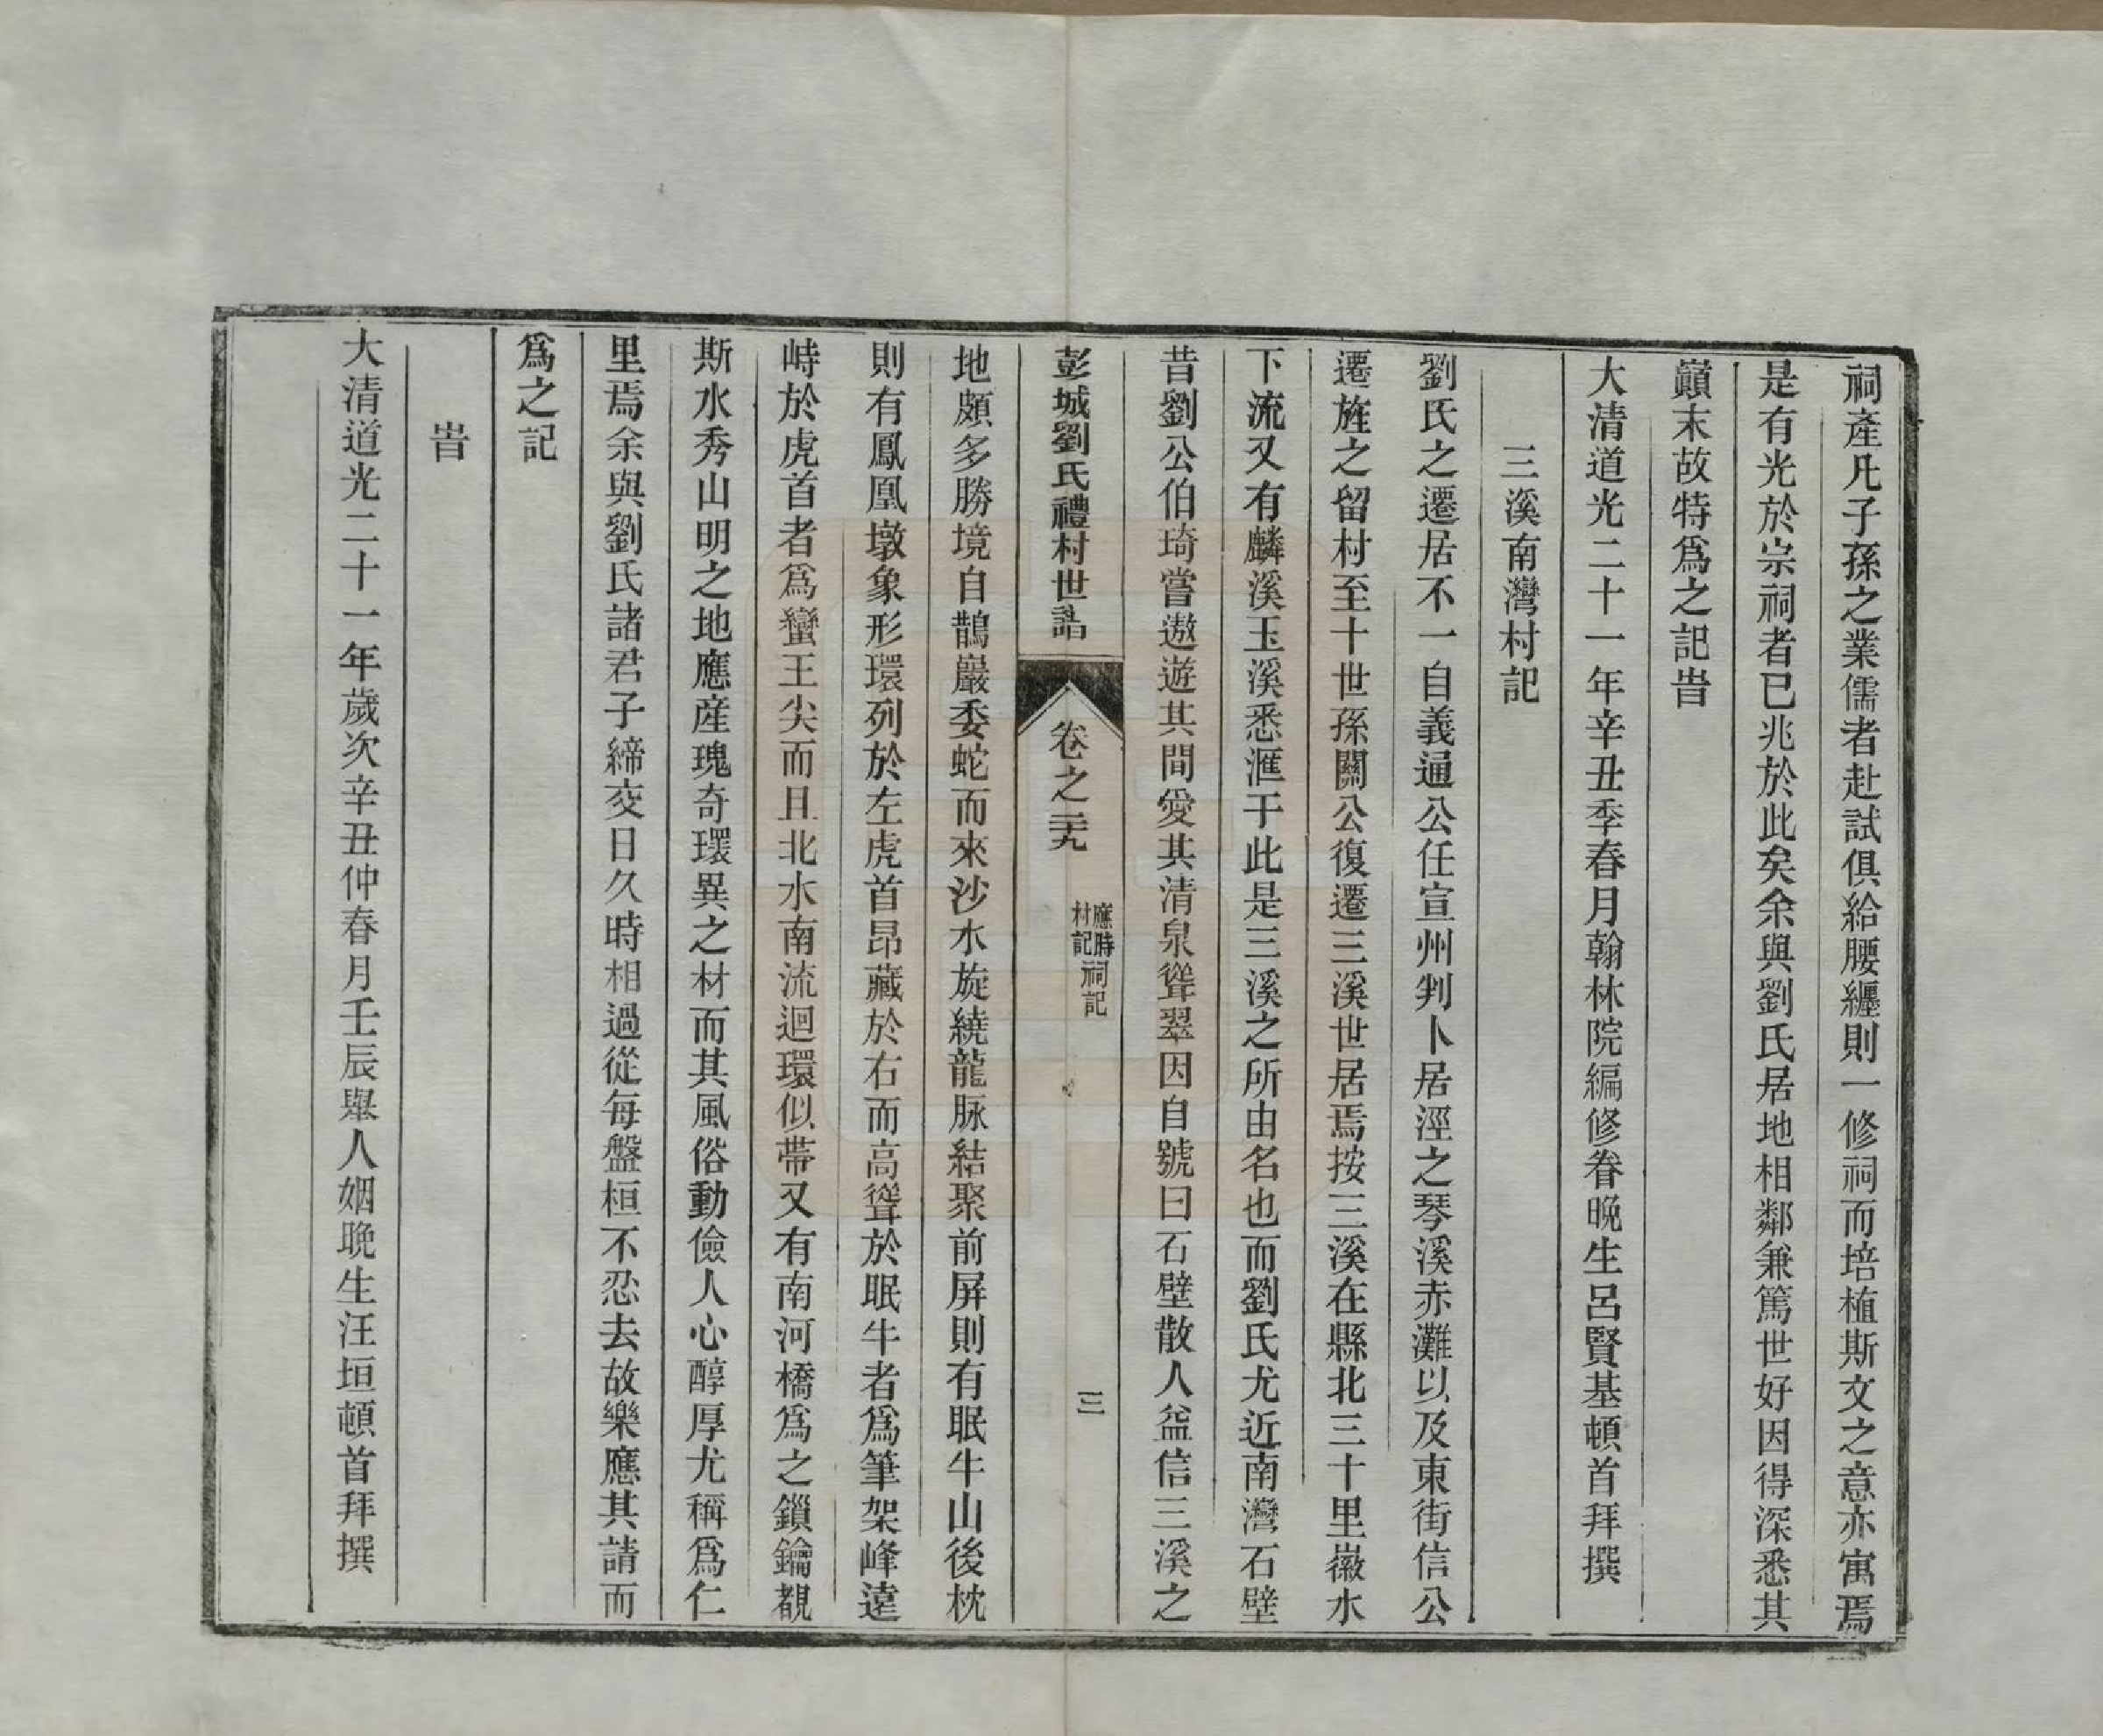 祠產凡子孫之業儒者赴試俱給腰纏則一修祠而培植斯文之意亦寓焉
是有光於宗祠者已兆於此矣余與劉氏居地相鄰兼篤世好因得深悉其
巔末故特爲之記旹
大清道光二十一年辛丑季春月翰林院編修眷晚生呂賢基頓首拜撰
三溪南灣村記
劉氏之遷居不一自義通公任宣州判卜居涇之琴溪赤灘以及東街信公
遷旌之留村至十世孫關公復遷三溪世居焉按三溪在縣北三十里徽水
下流又有麟溪玉溪悉滙于此是三溪之所由名也而劉氏尤近南灣石壁
昔劉公伯琦嘗遨遊其間愛其清泉聳翠因自號曰石壁散人益信三溪之
彭城劉氏禮村世譜
卷之二十九
應時
村記
祠記
三
地頗多勝境自鵲巖委蛇而來沙水旋繞龍脉結聚前屏則有眠牛山後枕
則有鳳凰墩象形環列於左虎首昂藏於右而高聳於眠牛者爲筆架峰遠
峙於虎首者爲蠻王尖而且北水南流迴環似帶又有南河橋爲之鎖鑰覩
斯水秀山明之地應産瑰奇瓌異之材而其風俗勤儉人心醇厚尤稱爲仁
里焉余與劉氏諸君子締交日久時相過從每盤桓不忍去故樂應其請而
爲之記
旹
大清道光二十一年歲次辛丑仲春月壬辰舉人姻晚生汪垣頓首拜撰